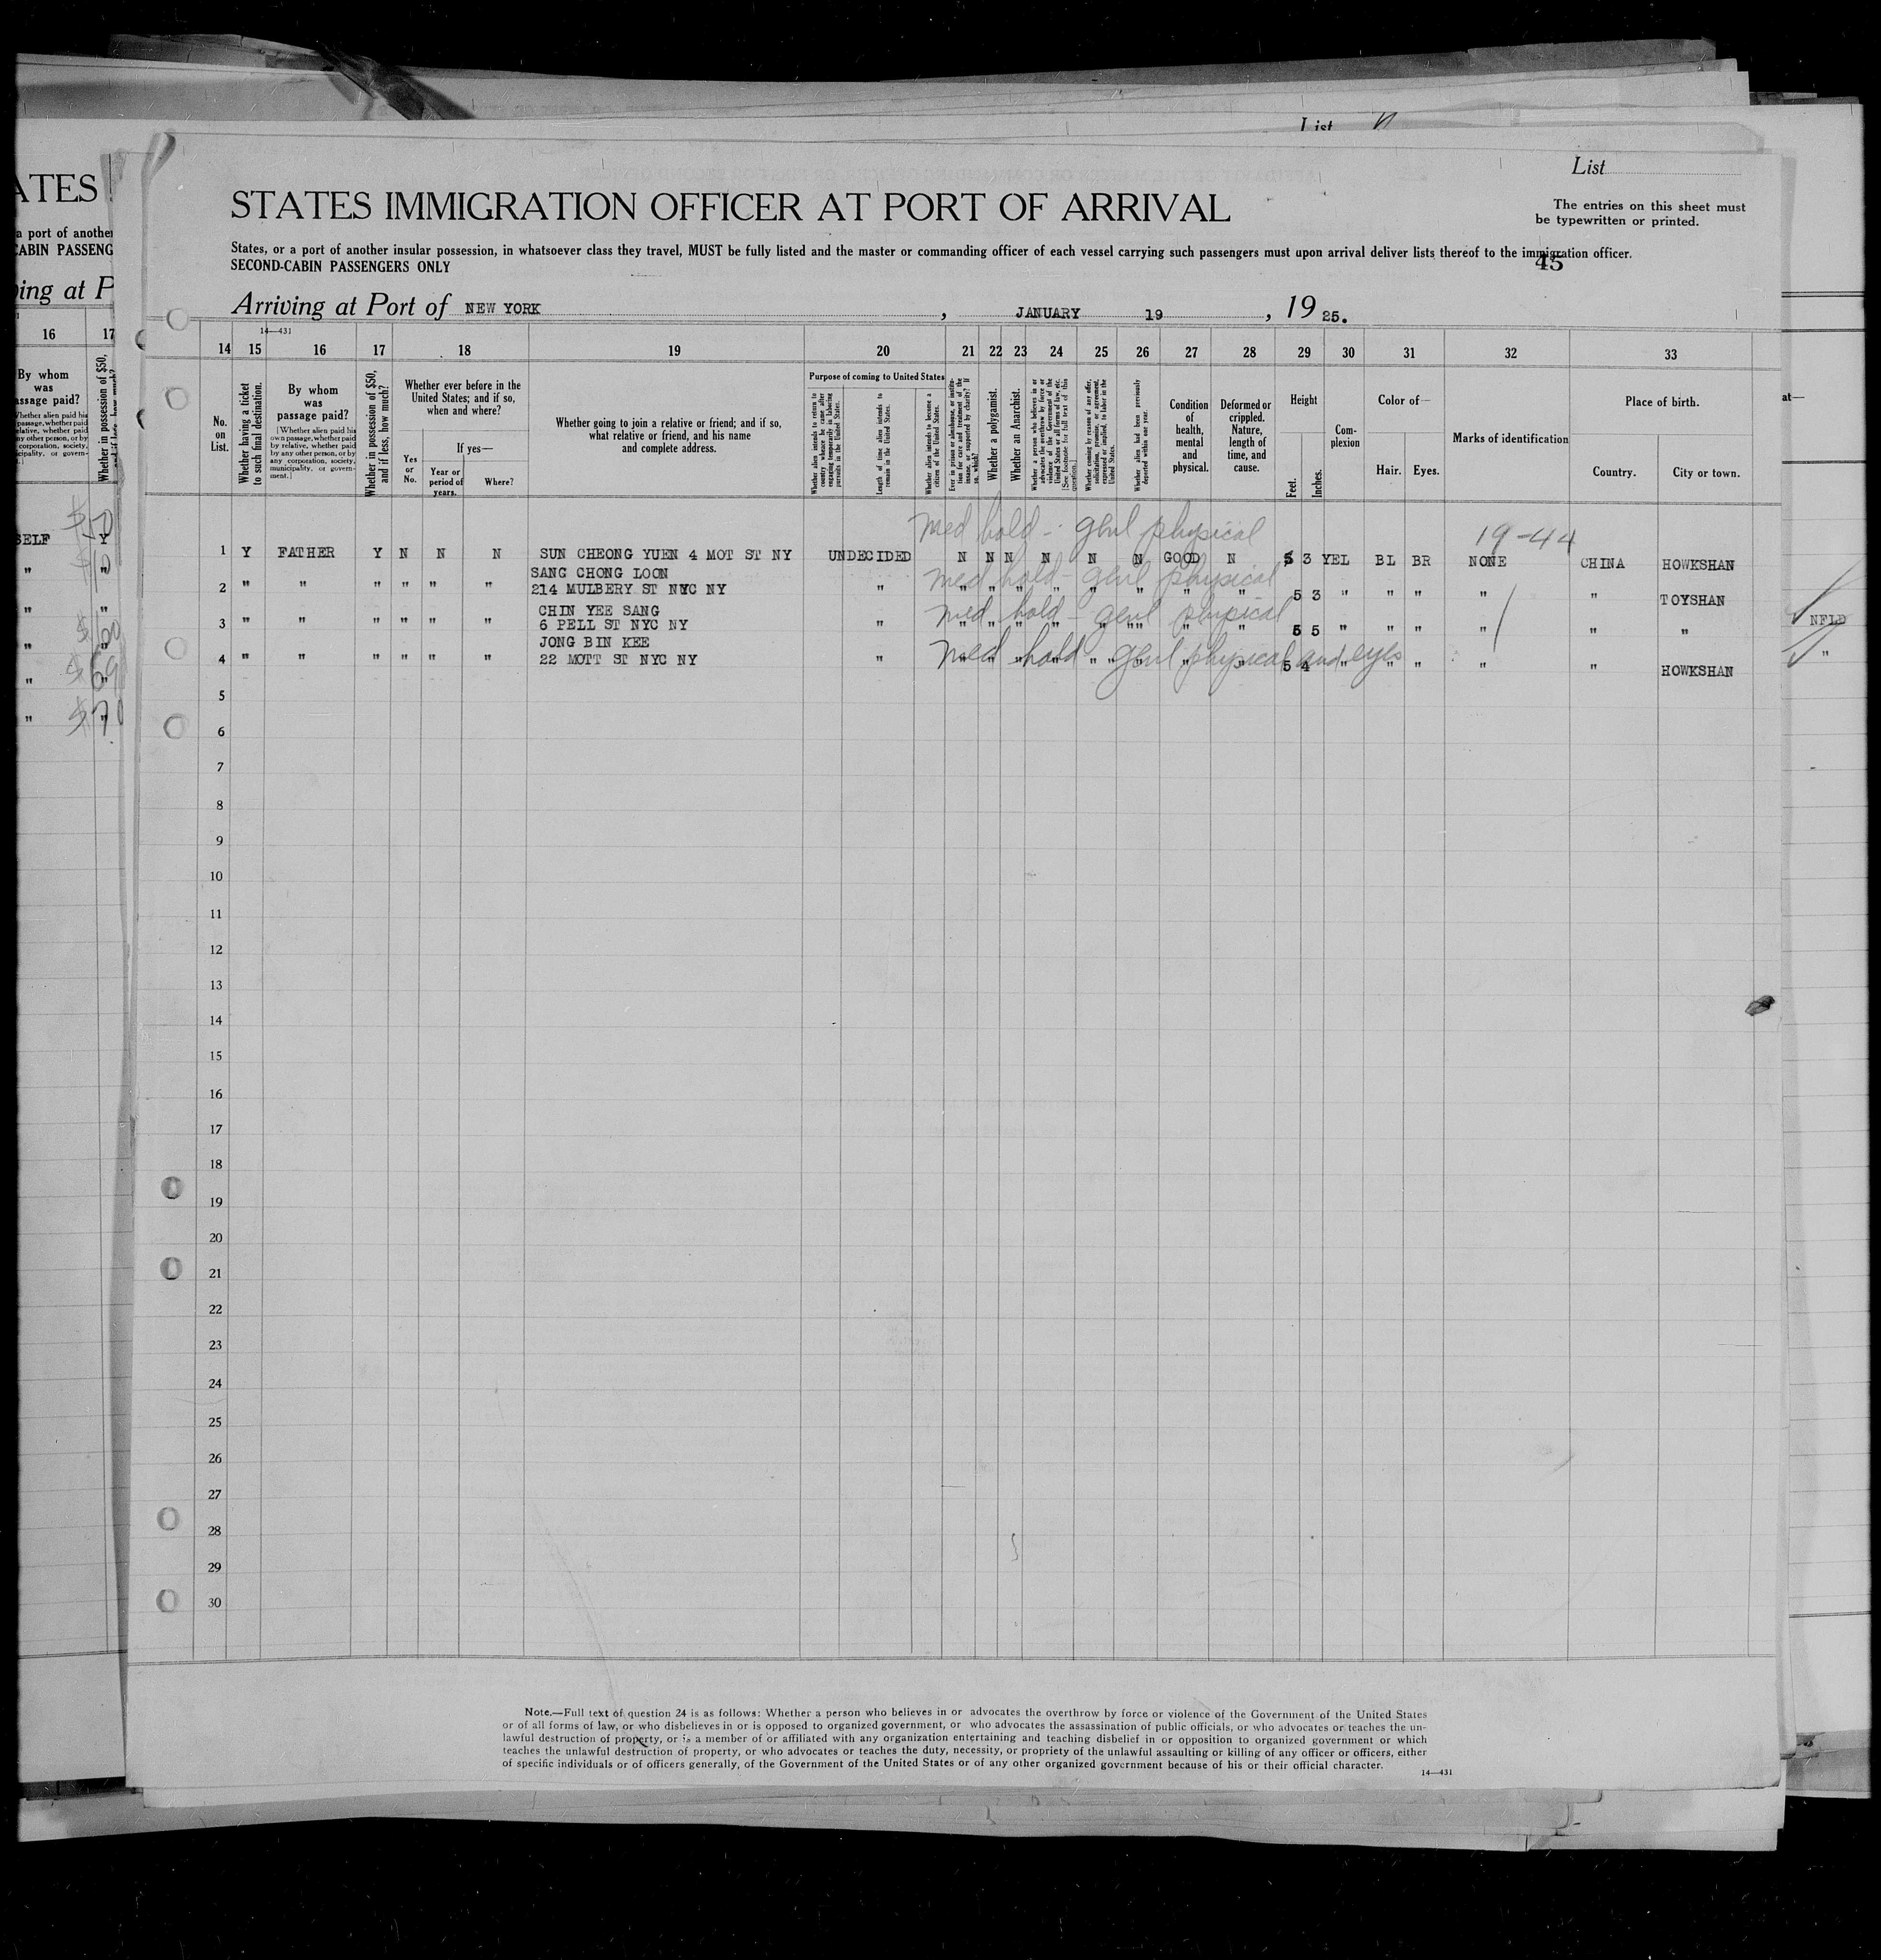 List
ATES
a port of another
CABIN PASSENG
ing at P
16 17
By whom
was
passage paid?
SELF Y
List
STATES IMMIGRATION OFFICER AT PORT OF ARRIVAL
The entries on this sheet must
be typewritten or printed.
States, or a port of another insular possession, in whatsoever class they travel, MUST be fully listed and the master or commanding officer of each vessel carrying such passengers must upon arrival deliver lists thereof to the immigration officer.
SECOND-CABIN PASSENGERS ONLY
45
Arriving at Port of NEW YORK, JANUARY 19, 1925.
14—431
14 15 16 17 18 19 20 21 22 23 24 25 26 27 28 29 30 31 32 33
No.
on
List.
Whether having a ticket
to such final destination.
By whom
was
passage paid?
[Whether alien paid his
own passage, whether paid
by relative, whether paid
by any other person, or by
any corporation, society,
municipality, or govern-
ment.]
Whether in possession of $50,
and if less, how much?
Whether ever before in the
United States; and if so,
when and where?
Yes
or
No.
If yes—
Year or
period of
years.
Where?
Whether going to join a relative or friend; and if so,
what relative or friend, and his name
and complete address.
Purpose of coming to United States
Whether alien intends to return to
country whence he came after
engaging temporarily in laboring
pursuits in the United States.
Length of time alien intends to
remain in the United States.
Whether alien intends to become a
citizen of the United States.
Ever in prison or almshouse, or institu-
tion for care and treatment of the
insane, or supported by charity? If
so, which?
Whether a polygamist.
Whether an Anarchist.
Whether a person who believes in or
advocates the overthrow by force or
violence of the Government of the
United States or all forms of law, etc.
[See footnote for full text of this
question.]
Whether coming by reason of any offer,
solicitation, promise, or agreement,
expressed or implied, to labor in the
United States.
Whether alien had been previously
deported within one year.
Condition
of
health,
mental
and
physical.
Deformed or
crippled.
Nature,
length of
time, and
cause.
Height
Feet.
Inches.
Com-
plexion
Color of—
Hair. Eyes.
Marks of identification
Place of birth.
Country. City or town.
med hold - genl physical
19-44
1 Y FATHER Y N N N SUN CHEONG YUEN 4 MOT ST NY UNDECIDED N N N N N N GOOD N 5 3 YEL BL BR NONE CHINA HOWKSHAN
SANG CHONG LOON
med hold - genl physical
2 " " " " " " 214 MULBERY ST NYC NY " " " " " " " " " 5 3 " " " " " TOYSHAN
CHIN YEE SANG
med hold - genl physical
3 " " " " " " 6 PELL ST NYC NY " " " " " " " " " 5 5 " " " " " "
JONG BIN KEE
med hold genl physical and eyes
4 " " " " " " 22 MOTT ST NYC NY " " " " " " " " " 5 4 " " " " " HOWKSHAN
NFLD
"
5
6
7
8
9
10
11
12
13
14
15
16
17
18
19
20
21
22
23
24
25
26
27
28
29
30
Note.—Full text of question 24 is as follows: Whether a person who believes in or advocates the overthrow by force or violence of the Government of the United States
or of all forms of law, or who disbelieves in or is opposed to organized government, or who advocates the assassination of public officials, or who advocates or teaches the un-
lawful destruction of property, or is a member of or affiliated with any organization entertaining and teaching disbelief in or opposition to organized government or which
teaches the unlawful destruction of property, or who advocates or teaches the duty, necessity, or propriety of the unlawful assaulting or killing of any officer or officers, either
of specific individuals or of officers generally, of the Government of the United States or of any other organized government because of his or their official character.
14—431